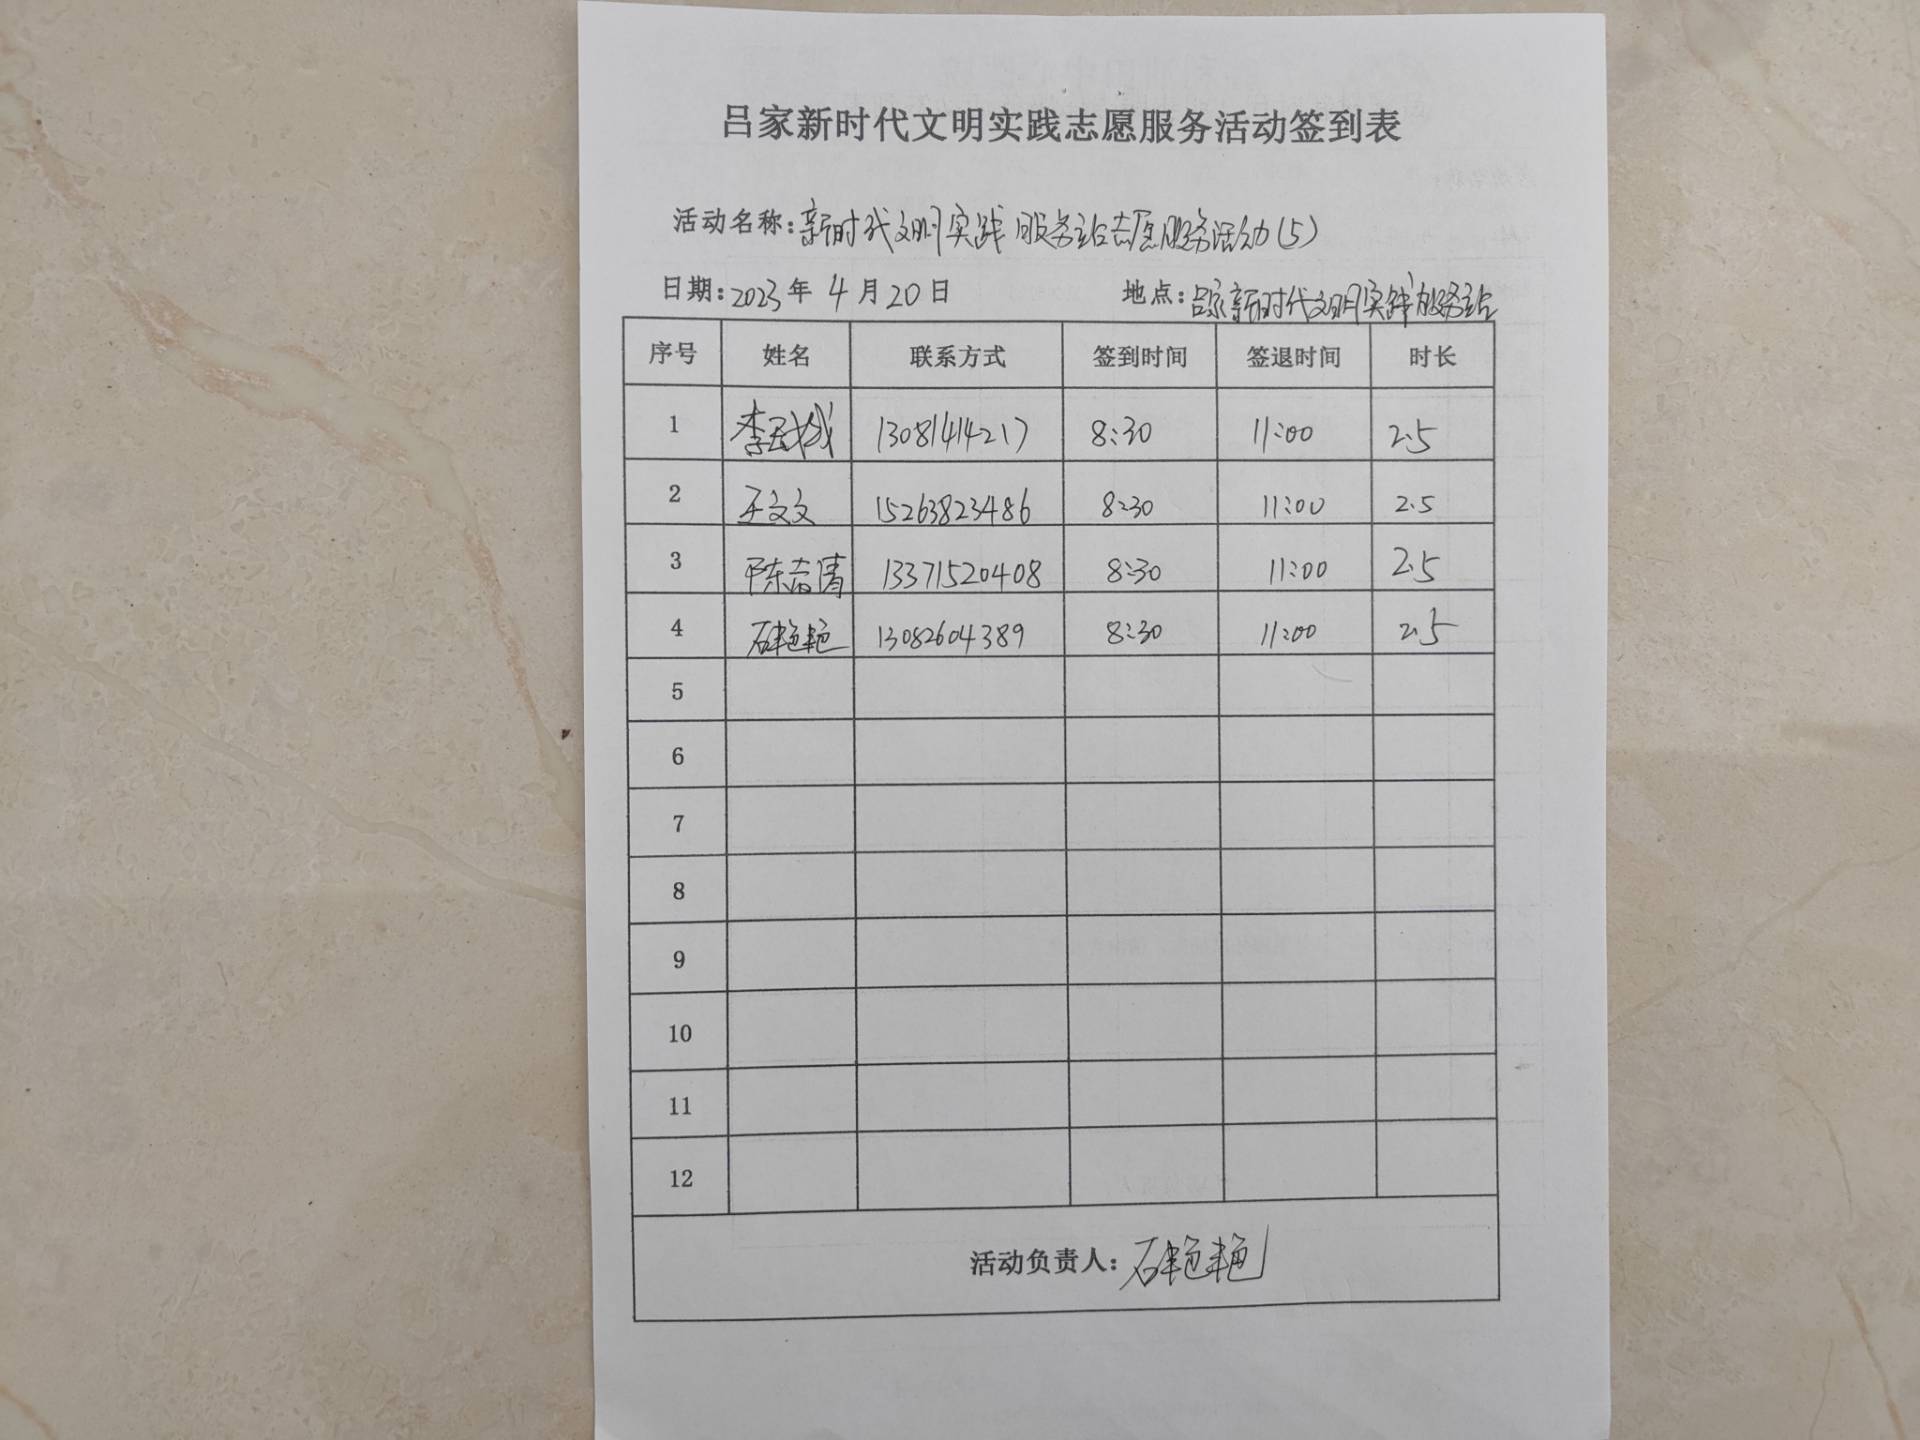 吕家新时代文明实践志愿服务活动签到表
活动名称:新时代文明实践服务站志愿服务活动(5)
日期:2023年4月20日 地点:吕家新时代文明实践服务站
序号 姓名 联系方式 签到时间 签退时间 时长
1 李 13081414217 8:30 11:00 2.5
2 王文文 15263823486 8:30 11:00 2.5
3 陈 清 13371520408 8:30 11:00 2.5
4 石艳艳 13082604389 8:30 11:00 2.5
5
6
7
8
9
10
11
12
活动负责人:石艳艳